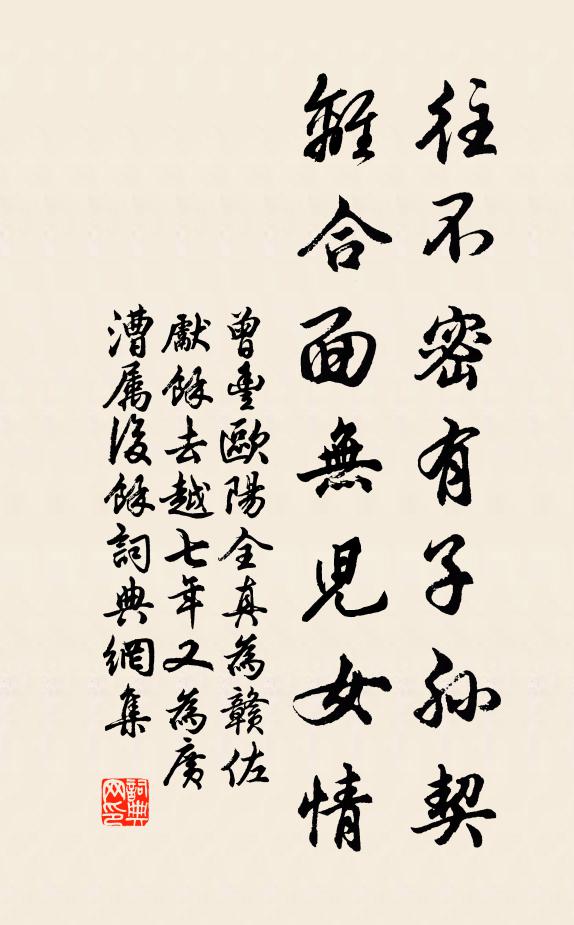 往不密有子孙契
離合面無児女情
曾豊歐陽全真為贛佐
獻餘去越七年又為廣
漕属後餘詞典網集
詞典网印